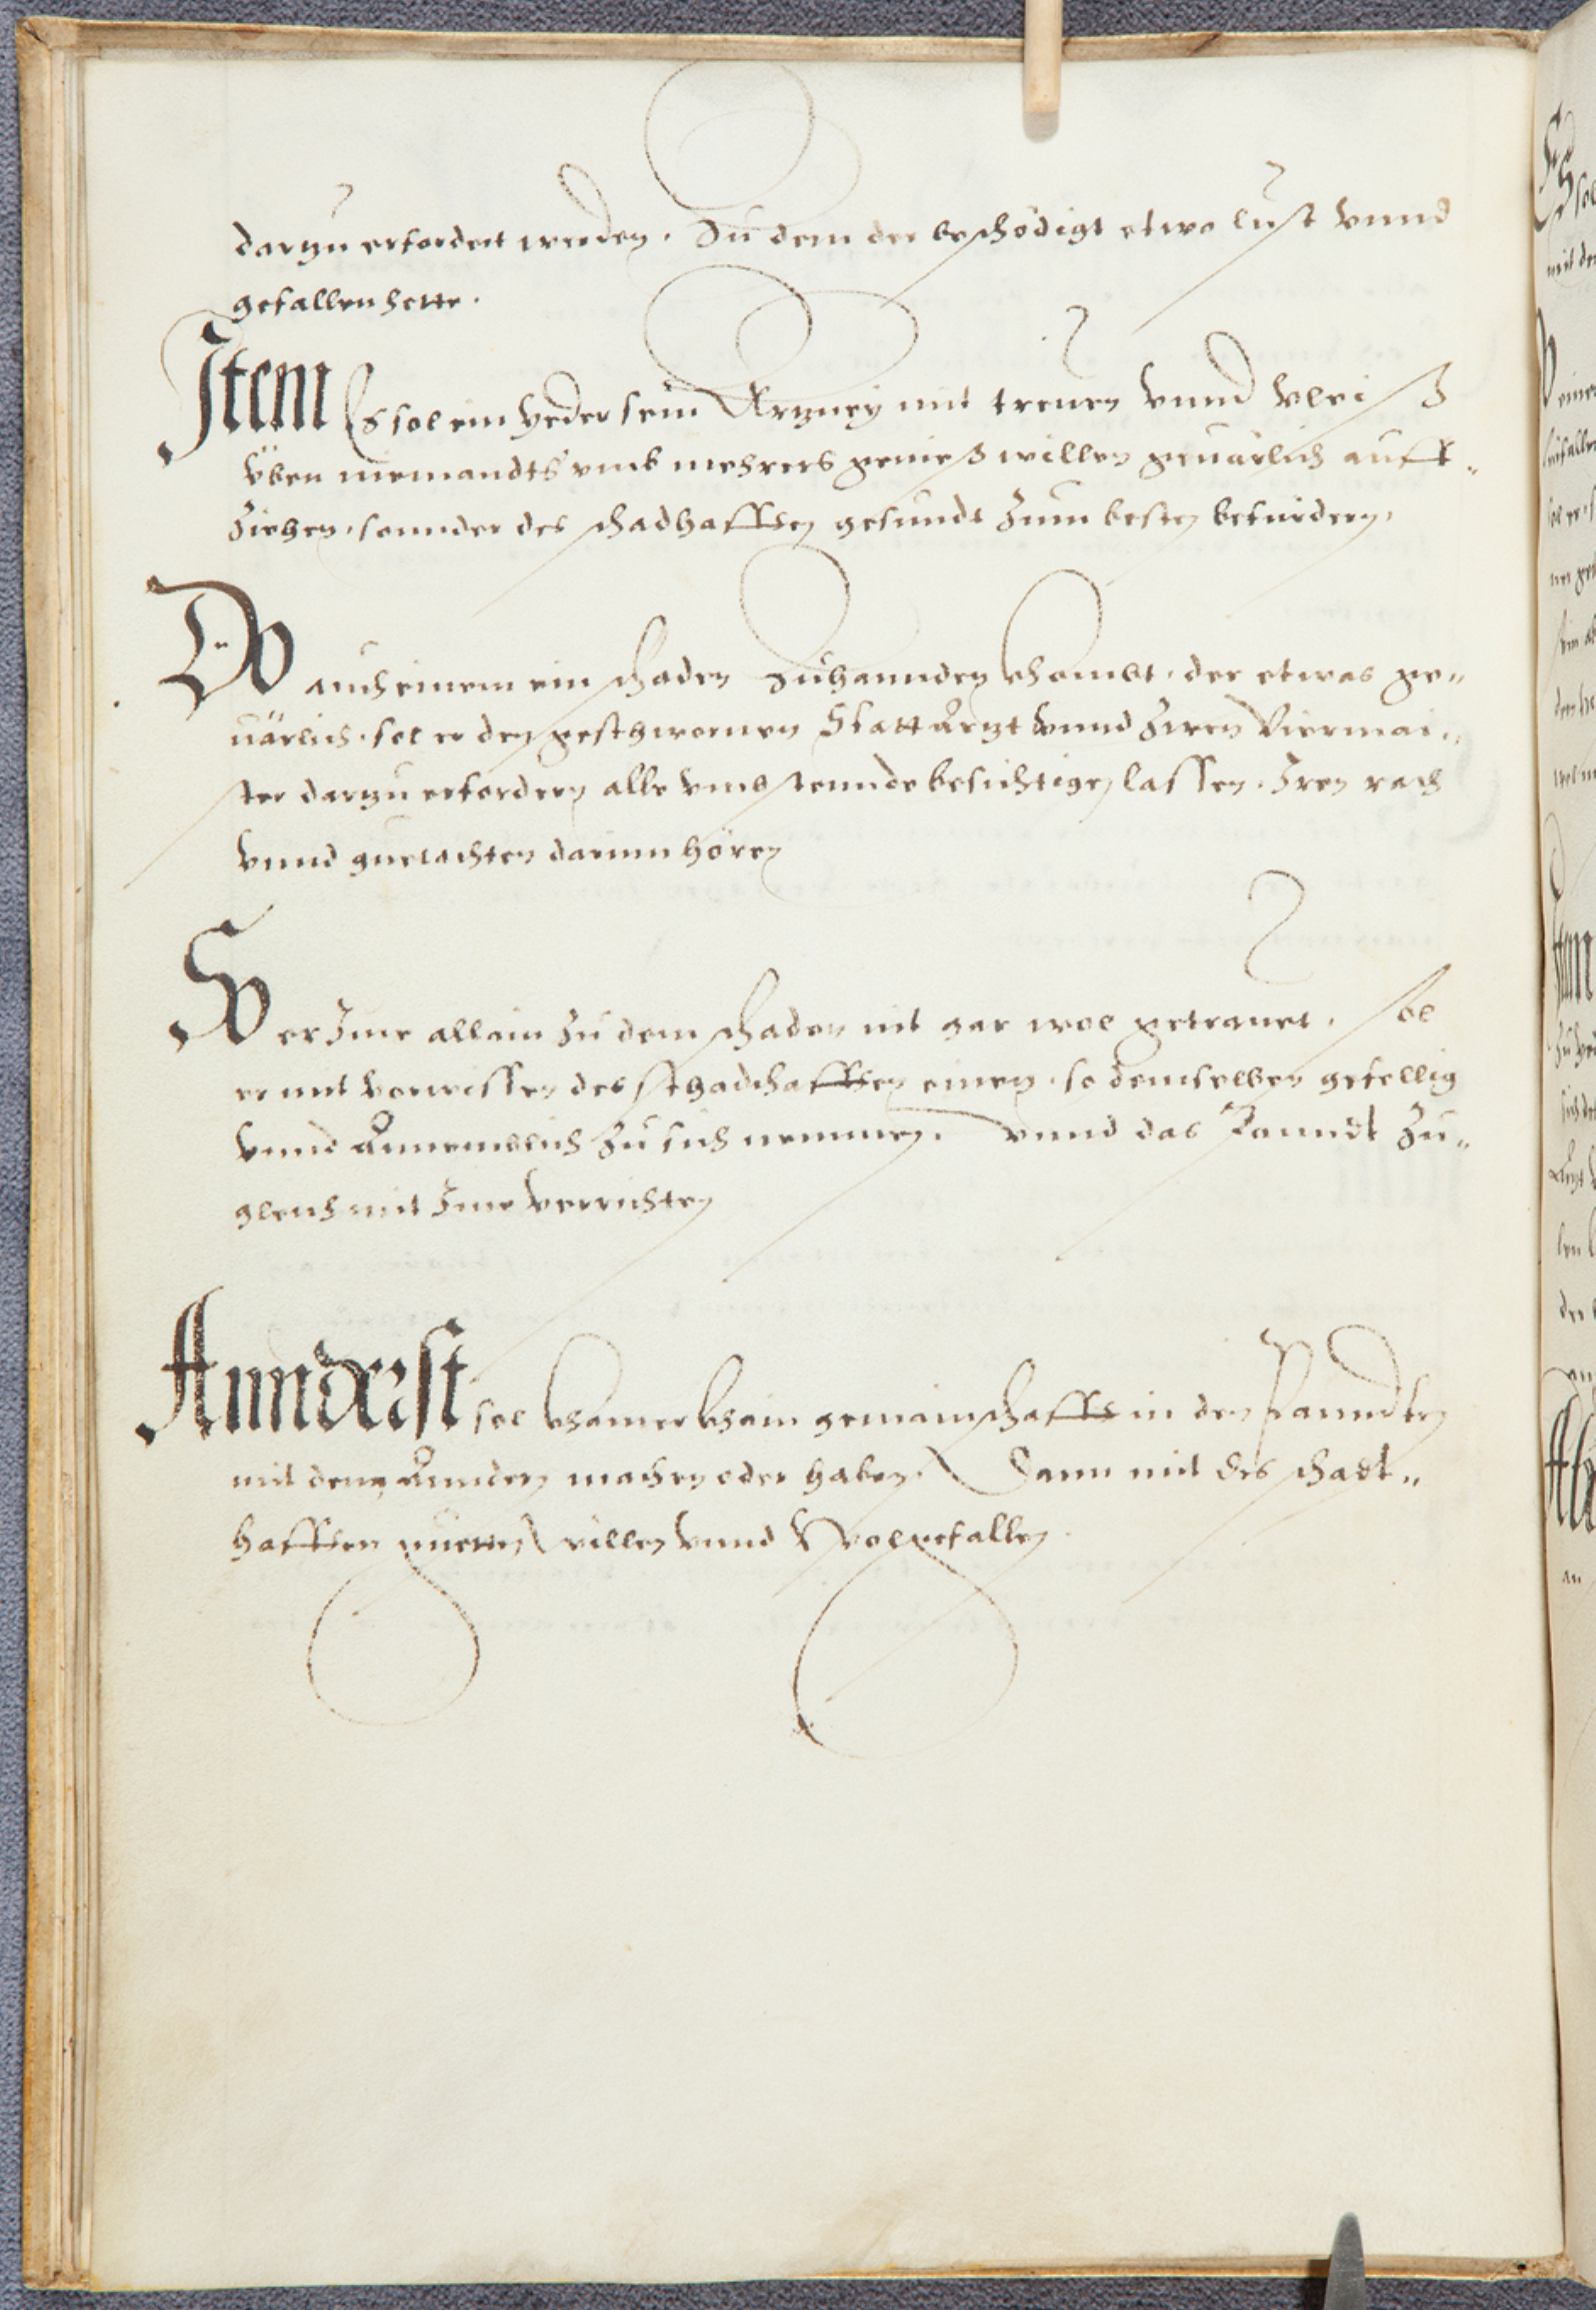 darzu erfordert werden. Zu dem der beschödigt etwo lust vnnd
gefallen hette.
Item Es sol ein yeder sein Artzney mit treuen vnnd vleiß
üben niemandts vmb mehrers genieß willen geuärlich auff-
ziehen, sonnder des schadhafften gesundt zum besten befürdern,
Do auch einem ein schaden zuhannden khombt, der etwas ge-
uärlich, sol er den geschwornen Stattartzt vnnd zwen Viermai-
ster darzu erfordern alle vmbstennde besichtigen lassen. Iren rath
vnnd guetachten darinn hören
So er Ime allain zu dem schaden nit gar wol getrauet, sol
er mit vorwissen des schadhafften einen, so demselben gefellig
vnnd Annemblich zu sich nemmen, vnnd das Panndt zu-
gleich mit Ime verrichten
Annderst sol khainer khain gemainschafft in den Panndten
mit dem Anndern machen oder haben. Dann mit des schadt-
hafften guetten willen vnnd Wolgefallen